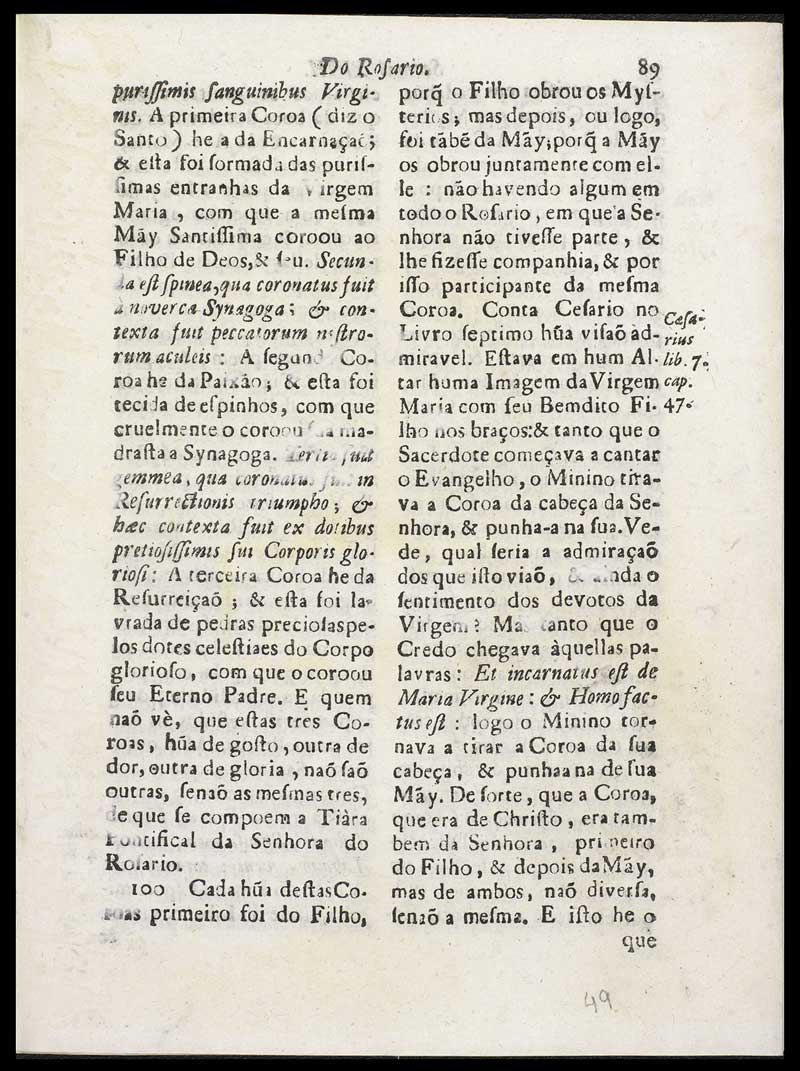 Do Roſario. 89
puriſſimis ſanguinibus Virgi-
nis. A primeira Coroa ( diz o
Santo ) he a da Encarnaçaõ;
& eſta foi formada das puriſ-
ſimas entranhas da Virgem
Maria , com que a meſma
Mãy Santiſſima coroou ao
Filho de Deos,& ſeu. Secun-
da eſt ſpinea,qua coronatus fuit
à noverca Synagoga; & con-
texta fuit peccatorum noſtro-
rum aculeis : A ſegunda Co-
roa he da Paixão; & eſta foi
tecida de eſpinhos, com que
cruelmente o coroou ſua ma-
draſta a Synagoga. Tertia fuit
gemmea, qua coronatus fuit in
Reſurrectionis triumpho; &
hæc contexta fuit ex dotibus
pretioſiſſimis ſui Corporis glo-
rioſi: A terceira Coroa he da
Reſurreiçaõ ; & eſta foi la-
vrada de pedras precioſas pe-
los dotes celeſtiaes do Corpo
glorioſo, com que o coroou
ſeu Eterno Padre. E quem
naõ vè, que eſtas tres Co-
roas, hũa de goſto, outra de
dor, outra de gloria , naõ ſaõ
outras, ſenaõ as meſmas tres,
de que ſe compoem a Tiàra
Pontifical da Senhora do
Roſario.
100 Cada hũa deſtas Co-
roas primeiro foi do Filho,
porq̃ o Filho obrou os Myſ-
terios; mas depois, ou logo,
foi tãbẽ da Mãy; porq̃ a Mãy
os obrou juntamente com el-
le : não havendo algum em
todo o Roſario, em que a Se-
nhora não tiveſſe parte , &
lhe fizeſſe companhia, & por
iſſo participante da meſma
Coroa. Conta Ceſario no
Livro ſeptimo hũa viſaõ ad-
miravel. Eſtava em hum Al-
tar huma Imagem da Virgem
Maria com ſeu Bemdito Fi-
lho nos braços:& tanto que o
Sacerdote começava a cantar
o Evangelho, o Minino tira-
va a Coroa da cabeça da Se-
nhora, & punha-a na ſua. Ve-
de, qual ſeria a admiraçaõ
dos que iſto viaõ, & ainda o
ſentimento dos devotos da
Virgem? Mas tanto que o
Credo chegava àquellas pa-
lavras: Et incarnatus eſt de
Maria Virgine: & Homo fac-
tus eſt : logo o Minino tor-
nava a tirar a Coroa da ſua
cabeça, & punhaa na de ſua
Mãy. De ſorte, que a Coroa,
que era de Chriſto, era tam-
bem da Senhora , primeiro
do Filho, & depois da Mãy,
mas de ambos, naõ diverſa,
ſenaõ a meſma. E iſto he o
que
Cæſa-
rius
lib. 7.
cap.
47.
49